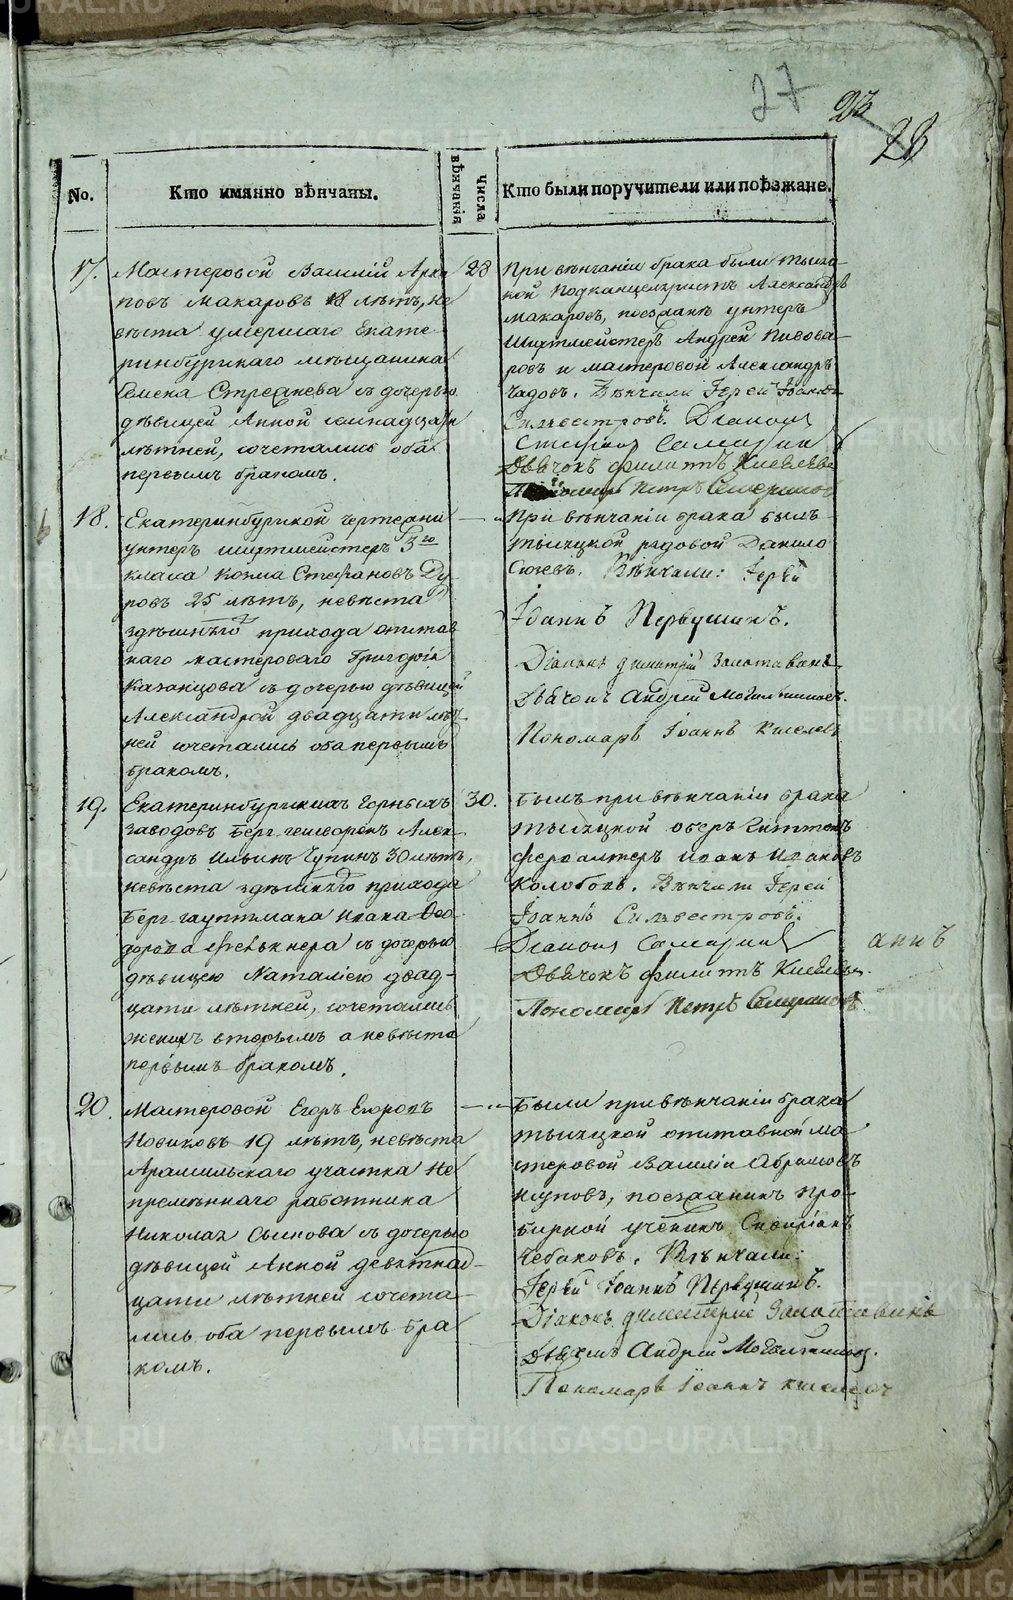 27
23
28
No.
Кто имянно вѣнчаны.
Числа вѣнчанія
Кто были поручители или поѣзжане.
17.
Мастеровой Василій Архи
повъ Макаровъ 18 лѣтъ, не
вѣста умершаго Екате
ринбургскаго мѣщанина
Семена съ дочерью
дѣвицей Анной
лѣтней, сочетались оба
первымъ бракомъ.
28
При вѣнчаніи брака были тысяц
кой Подканцеляристъ Александръ
Макаровъ, поезжане унтеръ
Шихтмейстеръ Андрей Пивова
ровъ и мастеровой Александръ
Чадовъ. Вѣнчали Іерей Іоаннъ
Сильвестровъ. Діаконъ
Стефанъ
Дьячокъ Филиппъ Киселевъ
Петръ
18.
Екатеринбургской чертежни
унтеръ шихтмейстеръ 3го
класа Козма Стефановъ Ду
ровъ 25 лѣтъ, невѣста
здѣшнѣго прихода отстав
наго мастероваго Григорія
Казанцова съ дочерью дѣвицей
Александрой двадцати лѣт
ней сочетались оба первымъ
бракомъ.
При вѣнчаніи брака былъ
тысяцкой рядовой Данило
Вѣнчали: Іерей
Іоаннъ Первушинъ.
Діаконъ Димитрій
Дьячокъ Андрей
Пономарь Іоаннъ Киселевъ
19.
Екатеринбургскихъ Горныхъ
заводовъ Берг гешворенъ Алек
сандръ Ильинъ Чупинъ 30 лѣтъ,
невѣста здѣшнѣго прихода
Берг гауптмана Ивана Фео
дорова съ дочерью
дѣвицею Наталіею двад-
цати лѣтней, сочетались
женихъ вторымъ а невѣста
первымъ бракомъ.
30.
Былъ при вѣнчаніи брака
тысяцкой оберъ Гиттенъ
фервалтеръ Иванъ Ивановъ
Колобовъ. Вѣнчали Іерей
Іоаннъ Сильвестровъ.
Діаконъ
аннъ
Дьячокъ Филиппъ Киселевъ.
Пономарь Петръ
20.
Мастеровой Егоръ Егоровъ
Новиковъ 19 лѣтъ, невѣста
Арамильскаго участка Не
премѣннаго работника
Николая съ дочерью
дѣвицей Анной девятнад-
цати лѣтней сочета-
лись оба первымъ бра
комъ.
Были при вѣнчаніи брака
тысяцкой отставной ма
стеровой Василій Абрамовъ
поезжанинъ про-
бирной ученикъ
Чебаковъ. Вѣнчали:
Іерей Іоаннъ Первушинъ.
Діаконъ Димитрій
Дьячокъ Андрей
Пономарь Іоаннъ Киселевъ
METRIKI.GASO-URAL.RU